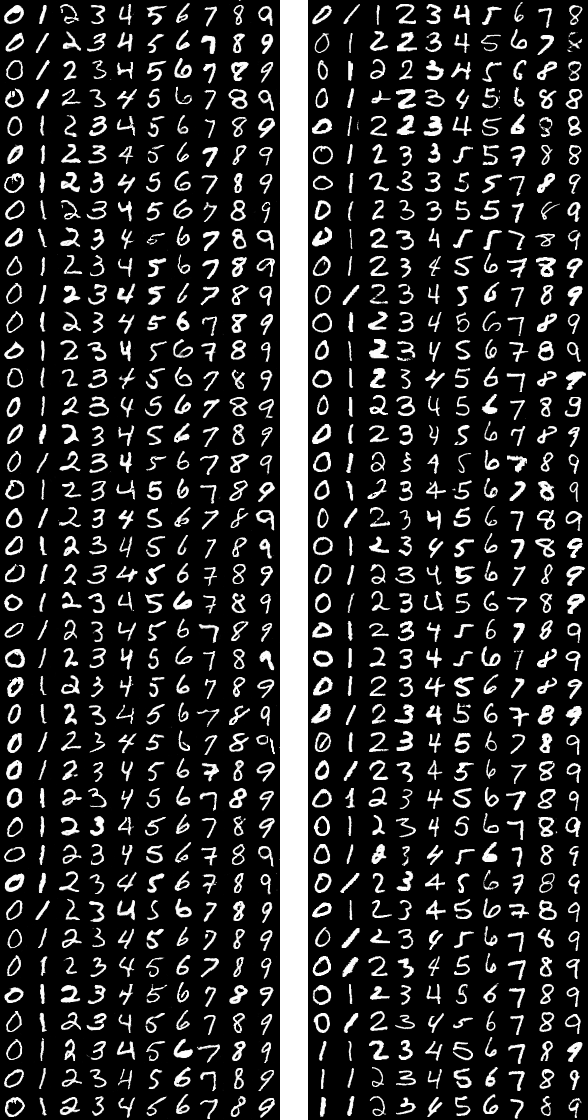 0 1 2 3 4 5 6 7 8 9
0 1 2 3 4 5 6 7 8 9
0 1 2 3 4 5 6 7 8 9
0 1 2 3 4 5 6 7 8 9
0 1 2 3 4 5 6 7 8 9
0 1 2 3 4 5 6 7 8 9
0 1 2 3 4 5 6 7 8 9
0 1 2 3 4 5 6 7 8 9
0 1 2 3 4 5 6 7 8 9
0 1 2 3 4 5 6 7 8 9
0 1 2 3 4 5 6 7 8 9
0 1 2 3 4 5 6 7 8 9
0 1 2 3 4 5 6 7 8 9
0 1 2 3 4 5 6 7 8 9
0 1 2 3 4 5 6 7 8 9
0 1 2 3 4 5 6 7 8 9
0 1 2 3 4 5 6 7 8 9
0 1 2 3 4 5 6 7 8 9
0 1 2 3 4 5 6 7 8 9
0 1 2 3 4 5 6 7 8 9
0 1 2 3 4 5 6 7 8 9
0 1 2 3 4 5 6 7 8 9
0 1 2 3 4 5 6 7 8 9
0 1 2 3 4 5 6 7 8 9
0 1 2 3 4 5 6 7 8 9
0 1 2 3 4 5 6 7 8 9
0 1 2 3 4 5 6 7 8 9
0 1 2 3 4 5 6 7 8 9
0 1 2 3 4 5 6 7 8 9
0 1 2 3 4 5 6 7 8 9
0 1 2 3 4 5 6 7 8 9
0 1 2 3 4 5 6 7 8 9
0 1 2 3 4 5 6 7 8 9
0 1 2 3 4 5 6 7 8 9
0 1 2 3 4 5 6 7 8 9
0 1 2 3 4 5 6 7 8 9
0 1 2 3 4 5 6 7 8 9
0 1 2 3 4 5 6 7 8 9
0 1 2 3 4 5 6 7 8 9
0 1 2 3 4 5 6 7 8 9
0 1 1 2 3 4 5 6 7 8
0 1 2 2 3 4 5 6 7 8
0 1 2 2 3 4 5 6 8 8
0 1 2 2 3 4 5 6 8 8
0 1 2 2 3 4 5 6 8 8
0 1 2 3 3 5 5 7 8 8
0 1 2 3 3 5 5 7 8 9
0 1 2 3 3 5 5 7 8 9
0 1 2 3 4 5 5 7 8 9
0 1 2 3 4 5 6 7 8 9
0 1 2 3 4 5 6 7 8 9
0 1 2 3 4 5 6 7 8 9
0 1 2 3 4 5 6 7 8 9
0 1 2 3 4 5 6 7 8 9
0 1 2 3 4 5 6 7 8 9
0 1 2 3 4 5 6 7 8 9
0 1 2 3 4 5 6 7 8 9
0 1 2 3 4 5 6 7 8 9
0 1 2 3 4 5 6 7 8 9
0 1 2 3 4 5 6 7 8 9
0 1 2 3 4 5 6 7 8 9
0 1 2 3 4 5 6 7 8 9
0 1 2 3 4 5 6 7 8 9
0 1 2 3 4 5 6 7 8 9
0 1 2 3 4 5 6 7 8 9
0 1 2 3 4 5 6 7 8 9
0 1 2 3 4 5 6 7 8 9
0 1 2 3 4 5 6 7 8 9
0 1 2 3 4 5 6 7 8 9
0 1 2 3 4 5 6 7 8 9
0 1 2 3 4 5 6 7 8 9
0 1 2 3 4 5 6 7 8 9
0 1 2 3 4 5 6 7 8 9
0 1 2 3 4 5 6 7 8 9
0 1 2 3 4 5 6 7 8 9
0 1 2 3 4 5 6 7 8 9
0 1 2 3 4 5 6 7 8 9
1 1 2 3 4 5 6 7 8 9
1 1 2 3 4 5 6 7 8 9
1 1 2 3 4 5 6 7 8 9